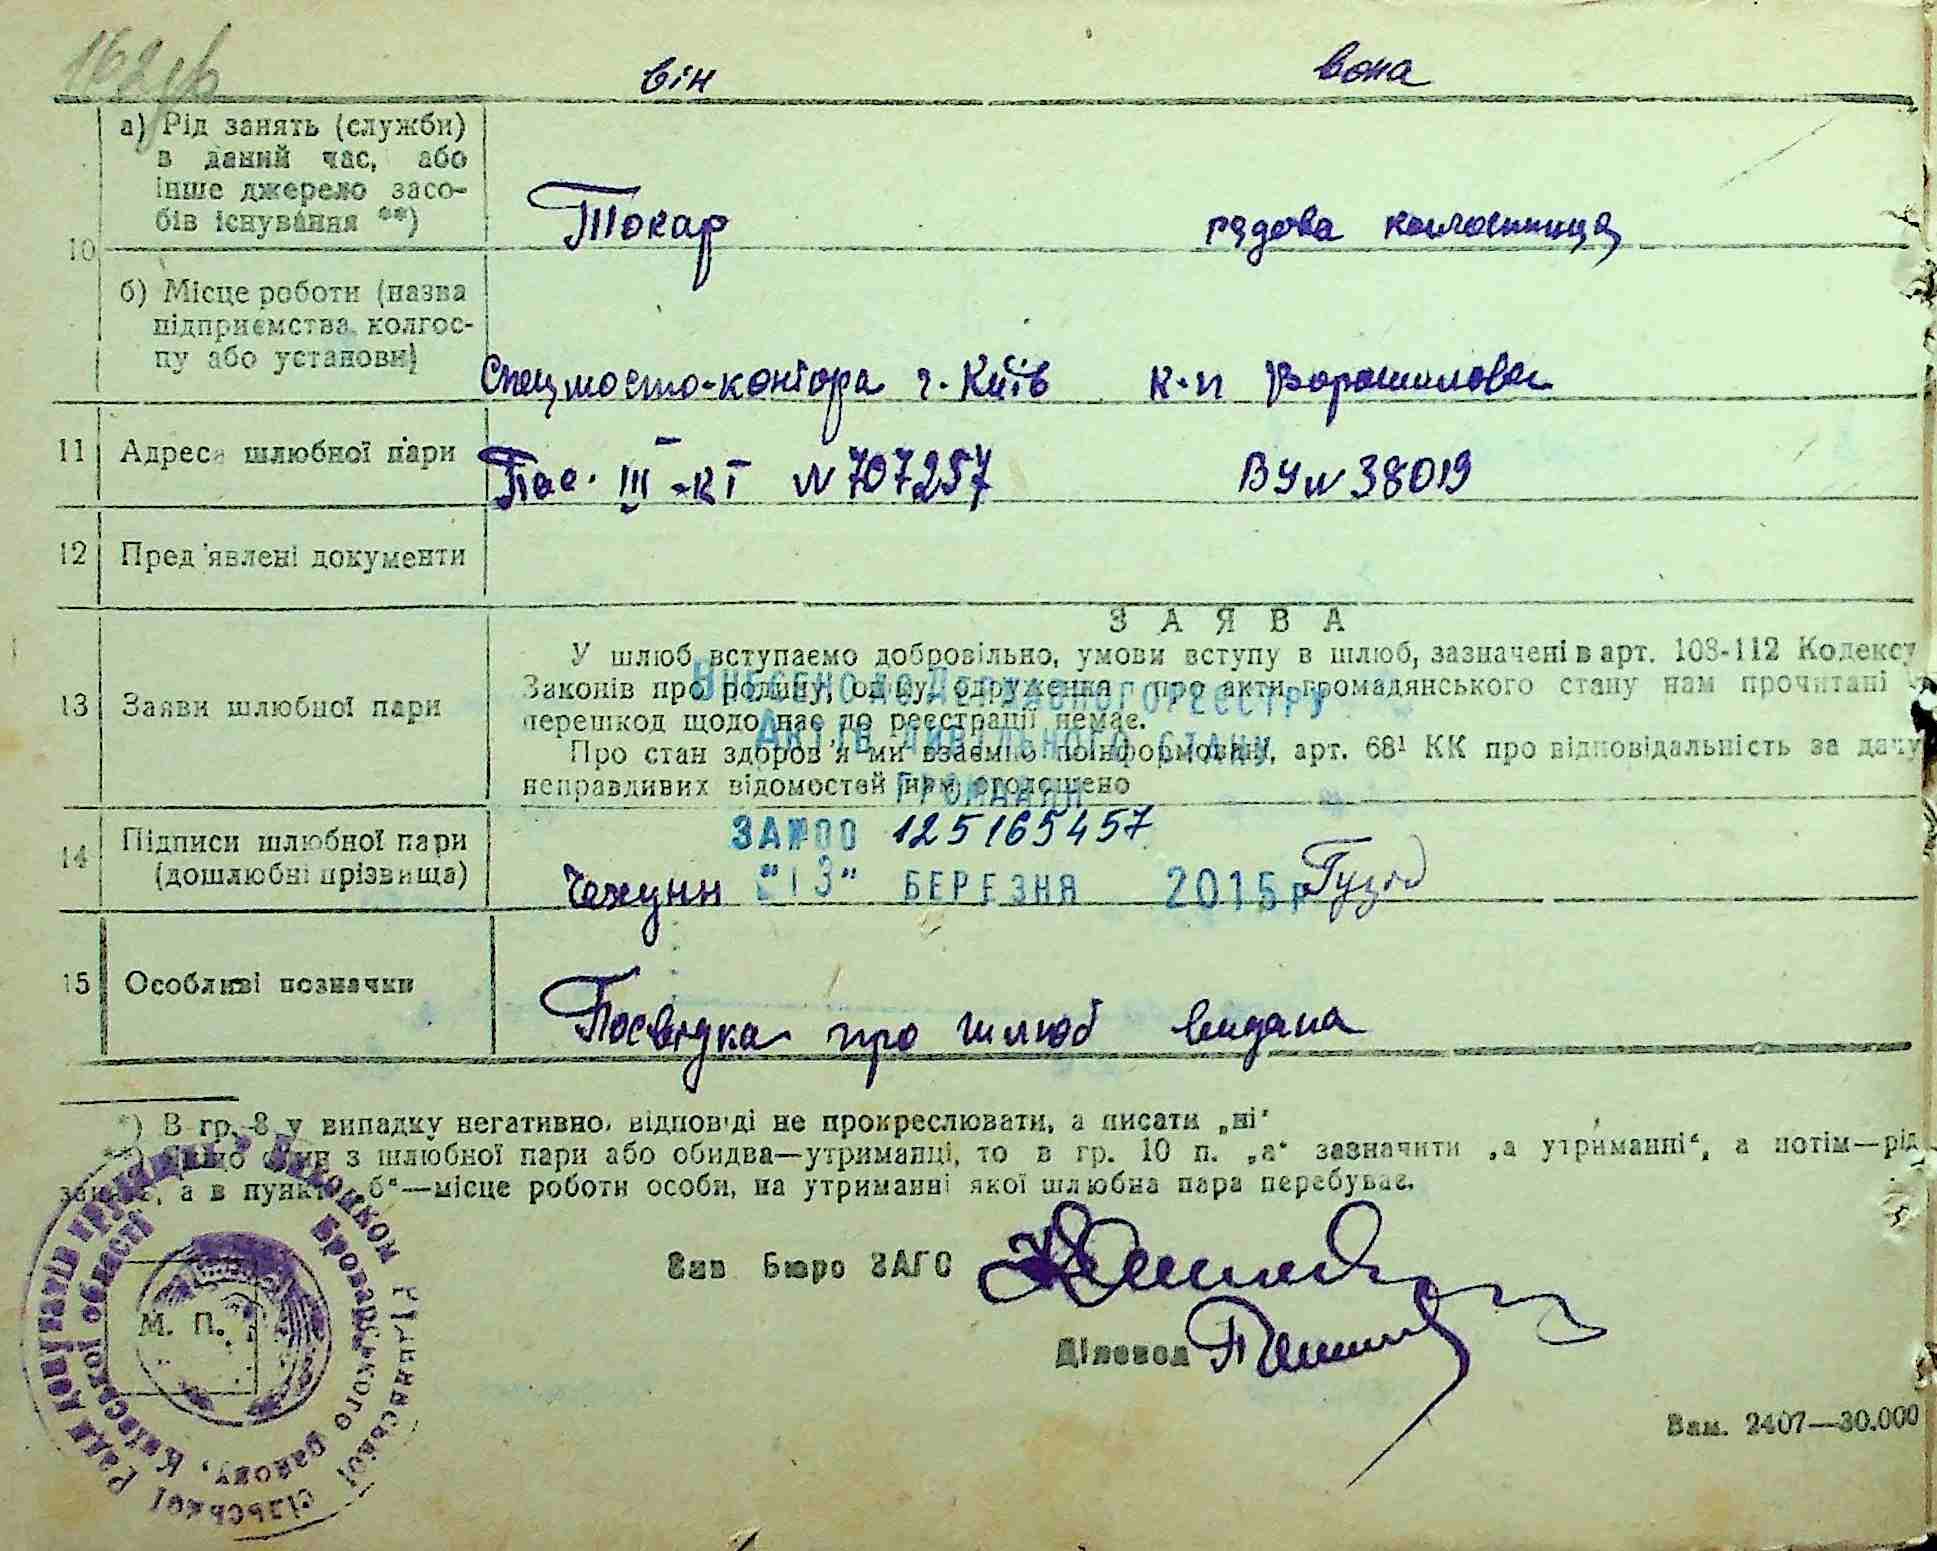 він вона
а) Рід занять (служби)
в даний час, або
інше джерело засо-
бів існування **)
Токар рядова колгоспниця
10
б) Місце роботи (назва
підприємства, колгос-
пу або установи)
Спецмосто-контора г. Київ к-п Ворошилова
11 Адреса шлюбної пари Пас. III-КТ № 707257 ВУ № 38019
12 Пред'явлені документи
ЗАЯВА
У шлюб вступаємо добровільно, умови вступу в шлюб, зазначені в арт. 108-112 Кодексу
13 Заяви шлюбної пари Законів про родину, опіку, одруження про акти громадянського стану нам прочитані
перешкод щодо нас до реєстрації немає.
Про стан здоров'я ми взаємно поінформовані, арт. 68¹ КК про відповідальність за дачу
неправдивих відомостей нам оголошено
ВНЕСЕНО ДО ДЕРЖАВНОГО РЕЄСТРУ
АКТІВ ЦИВІЛЬНОГО СТАНУ
ГРОМАДЯН
ЗА №00 125165457
14 Підписи шлюбної пари
(дошлюбні прізвища)
"13" БЕРЕЗНЯ 2015 р
15 Особливі позначки
Посвідка про шлюб видана
*) В гр. 8 у випадку негативної відповіді не прокреслювати, а писати „ні“
**) Якщо один з шлюбної пари або обидва—утриманці, то в гр. 10 п. „а“ зазначити „а утриманні“, а потім—рід
занять, а в пункті „б“—місце роботи особи, на утриманні якої шлюбна пара перебуває.
Зав Бюро ЗАГС
М. П.
Діловод
Виконком сільської Ради депутатів трудящих
Броварського району, Київської області
Зам. 2407—30.000